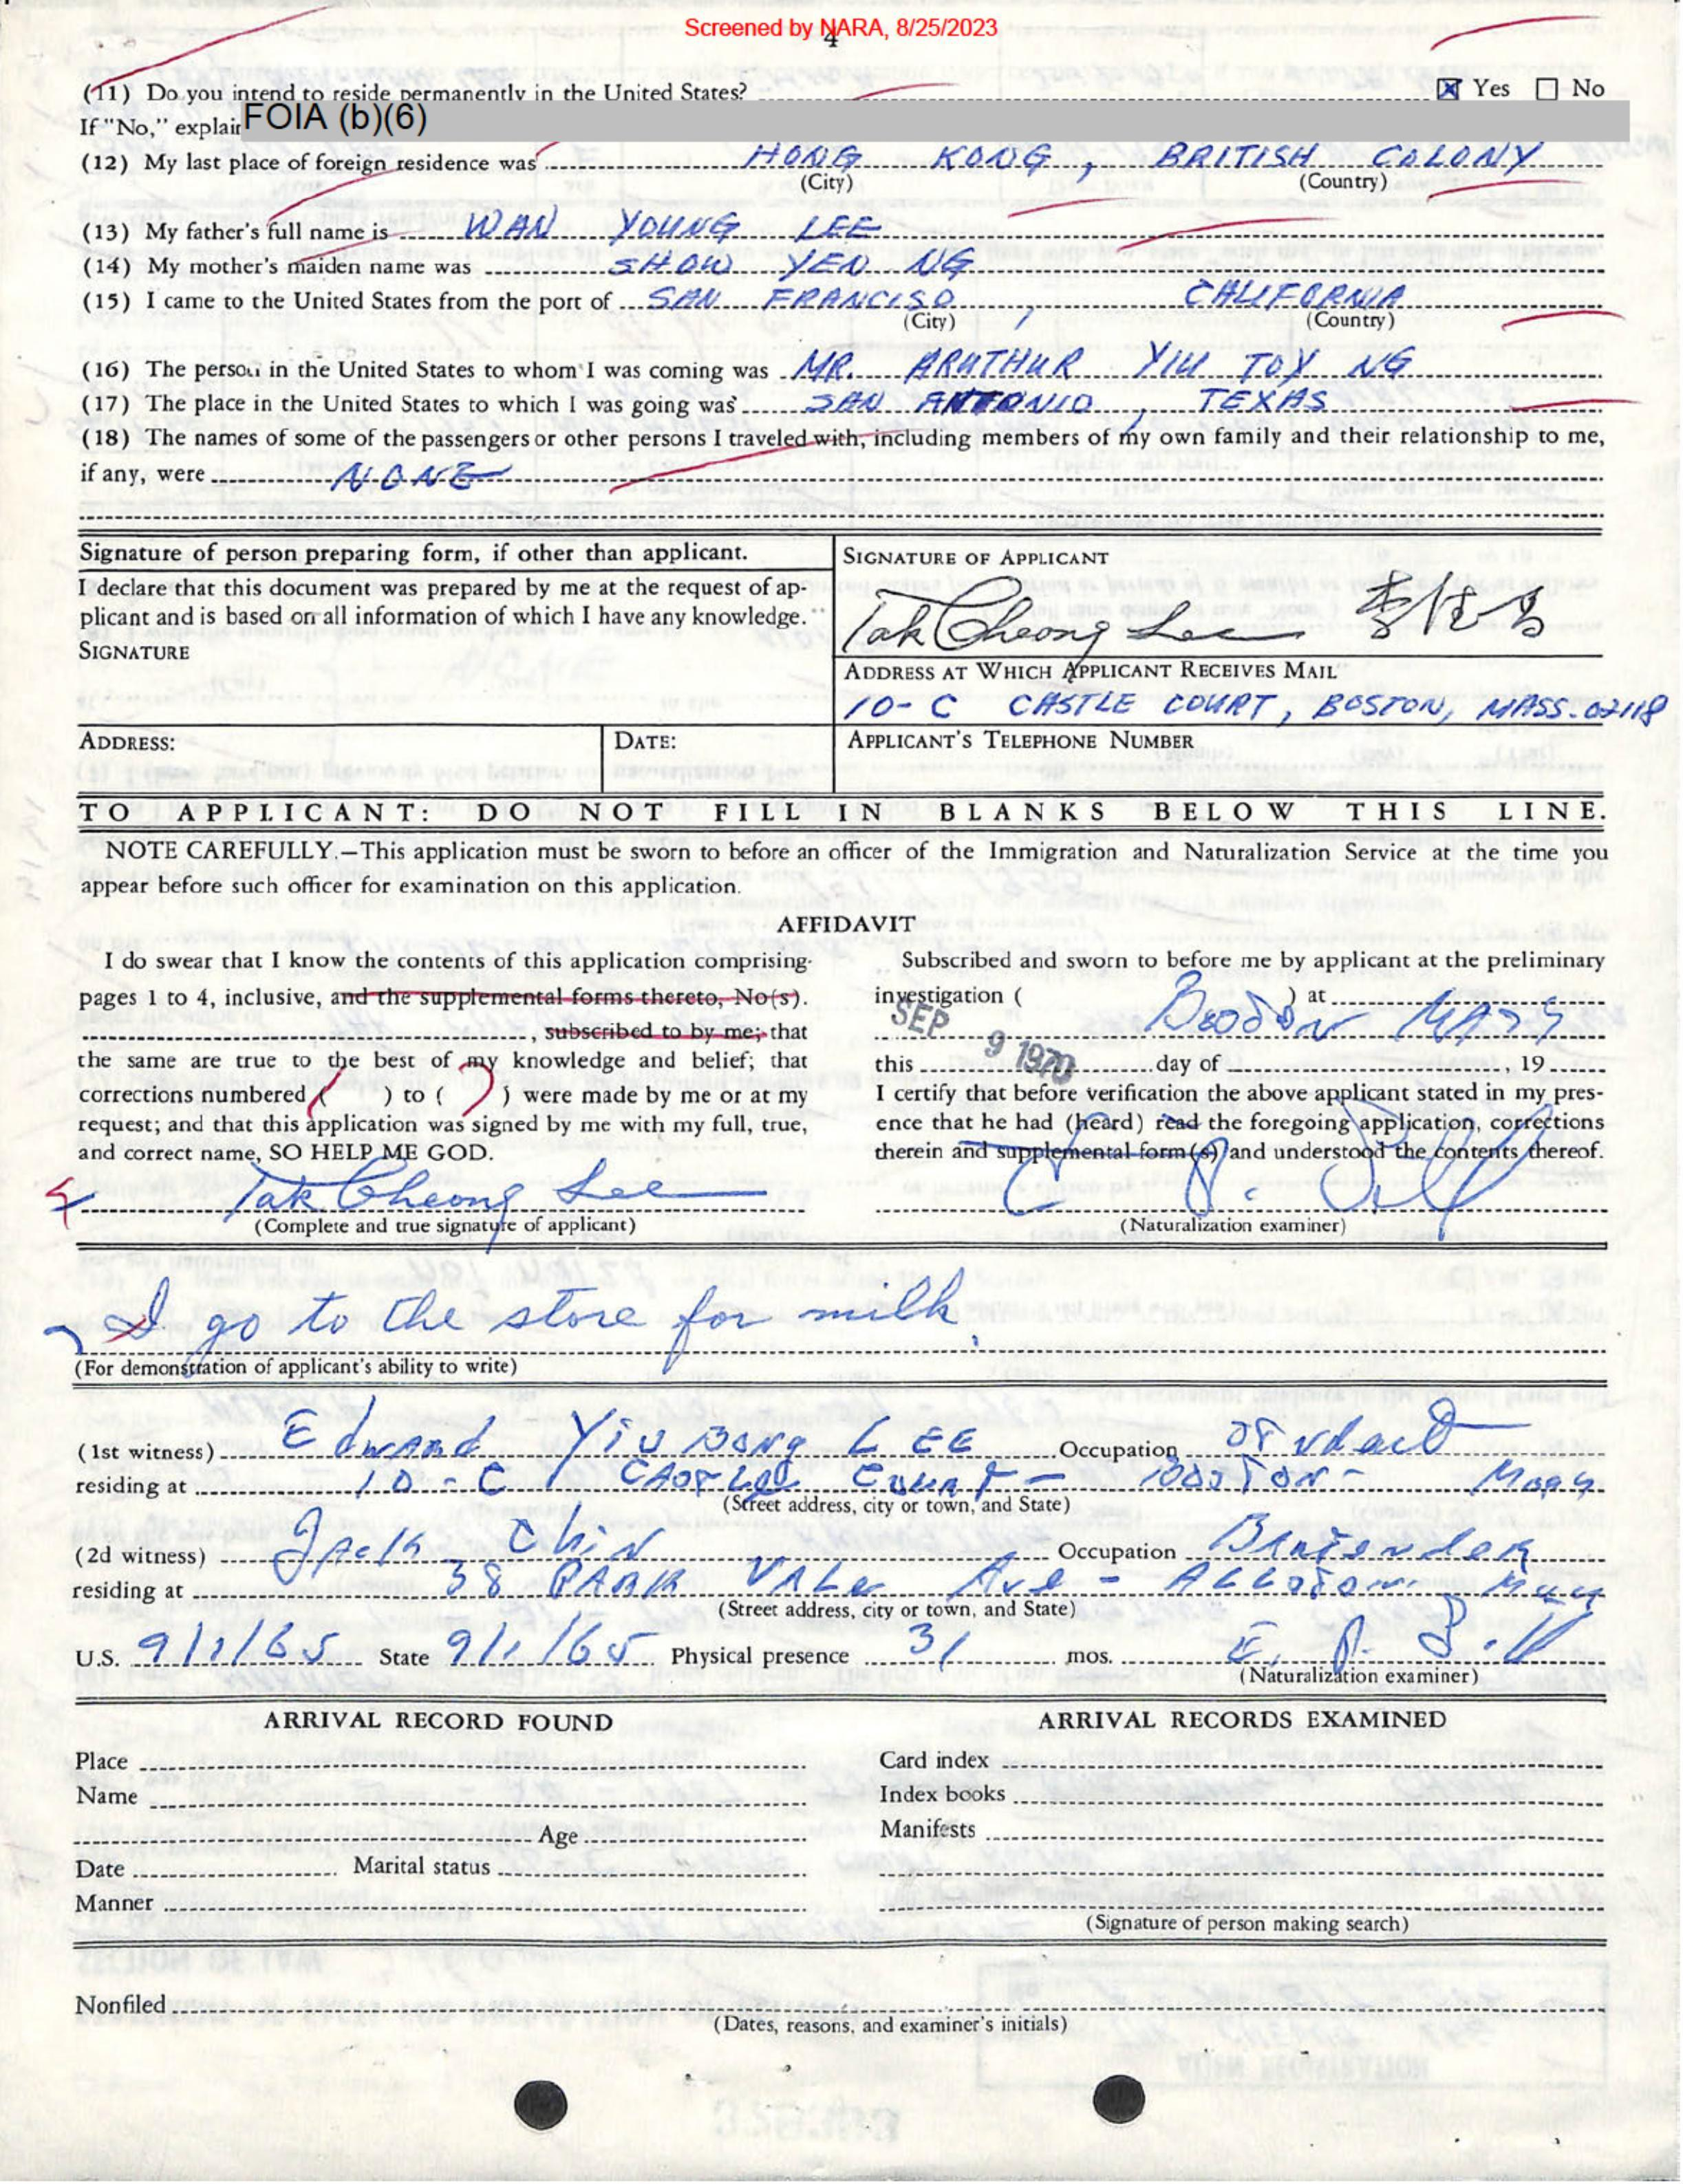 Screened by NARA, 8/25/2023
4
(11) Do you intend to reside permanently in the United States? ☒ Yes ☐ No
If "No," explain FOIA (b)(6)
(12) My last place of foreign residence was HONG KONG, BRITISH COLONY
(City) (Country)
(13) My father's full name is WAN YOUNG LEE
(14) My mother's maiden name was SHOW YEN NG
(15) I came to the United States from the port of SAN FRANCISO, CALIFORNIA
(City) (Country)
(16) The person in the United States to whom I was coming was MR. ARUTHUR YIU TOY NG
(17) The place in the United States to which I was going was SAN ANTONIO, TEXAS
(18) The names of some of the passengers or other persons I traveled with, including members of my own family and their relationship to me,
if any, were NONE
Signature of person preparing form, if other than applicant.
I declare that this document was prepared by me at the request of ap-
plicant and is based on all information of which I have any knowledge.
SIGNATURE
SIGNATURE OF APPLICANT
Tak Cheong Lee 李
ADDRESS AT WHICH APPLICANT RECEIVES MAIL
10-C CASTLE COURT, BOSTON, MASS. 02118
ADDRESS: DATE: APPLICANT'S TELEPHONE NUMBER
TO APPLICANT: DO NOT FILL IN BLANKS BELOW THIS LINE.
NOTE CAREFULLY.—This application must be sworn to before an officer of the Immigration and Naturalization Service at the time you
appear before such officer for examination on this application.
AFFIDAVIT
I do swear that I know the contents of this application comprising
pages 1 to 4, inclusive, and the supplemental forms thereto, No(s).
, subscribed to by me; that
the same are true to the best of my knowledge and belief; that
corrections numbered ( ) to ( ) were made by me or at my
request; and that this application was signed by me with my full, true,
and correct name, SO HELP ME GOD.
Tak Cheong Lee
(Complete and true signature of applicant)
Subscribed and sworn to before me by applicant at the preliminary
investigation ( ) at Boston Mass
SEP 9 1970
this day of , 19
I certify that before verification the above applicant stated in my pres-
ence that he had (heard) read the foregoing application, corrections
therein and supplemental form(s) and understood the contents thereof.
(Naturalization examiner)
I go to the store for milk.
(For demonstration of applicant's ability to write)
(1st witness) Edward Yiu Bong LEE Occupation
residing at 10-C Castle Court - Boston - Mass
(Street address, city or town, and State)
(2d witness) Jack Chin Occupation Bartender
residing at 38 PARK VALe Ave - ALLston Mass
(Street address, city or town, and State)
U.S. 9/1/65 State 9/1/65 Physical presence 31 mos.
(Naturalization examiner)
ARRIVAL RECORD FOUND
Place
Name
Age
Date Marital status
Manner
ARRIVAL RECORDS EXAMINED
Card index
Index books
Manifests
(Signature of person making search)
Nonfiled
(Dates, reasons, and examiner's initials)